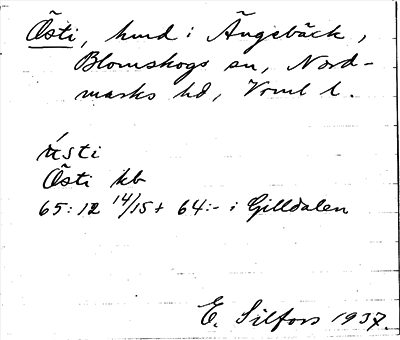 Östi, hmd i Ängebäck,
Blomskogs sn, Nord-
marks hd, Vrml l.
östi
Östi kb
65:12 14/15 + 64:- i Gilldalen
E. Silfors 1937.